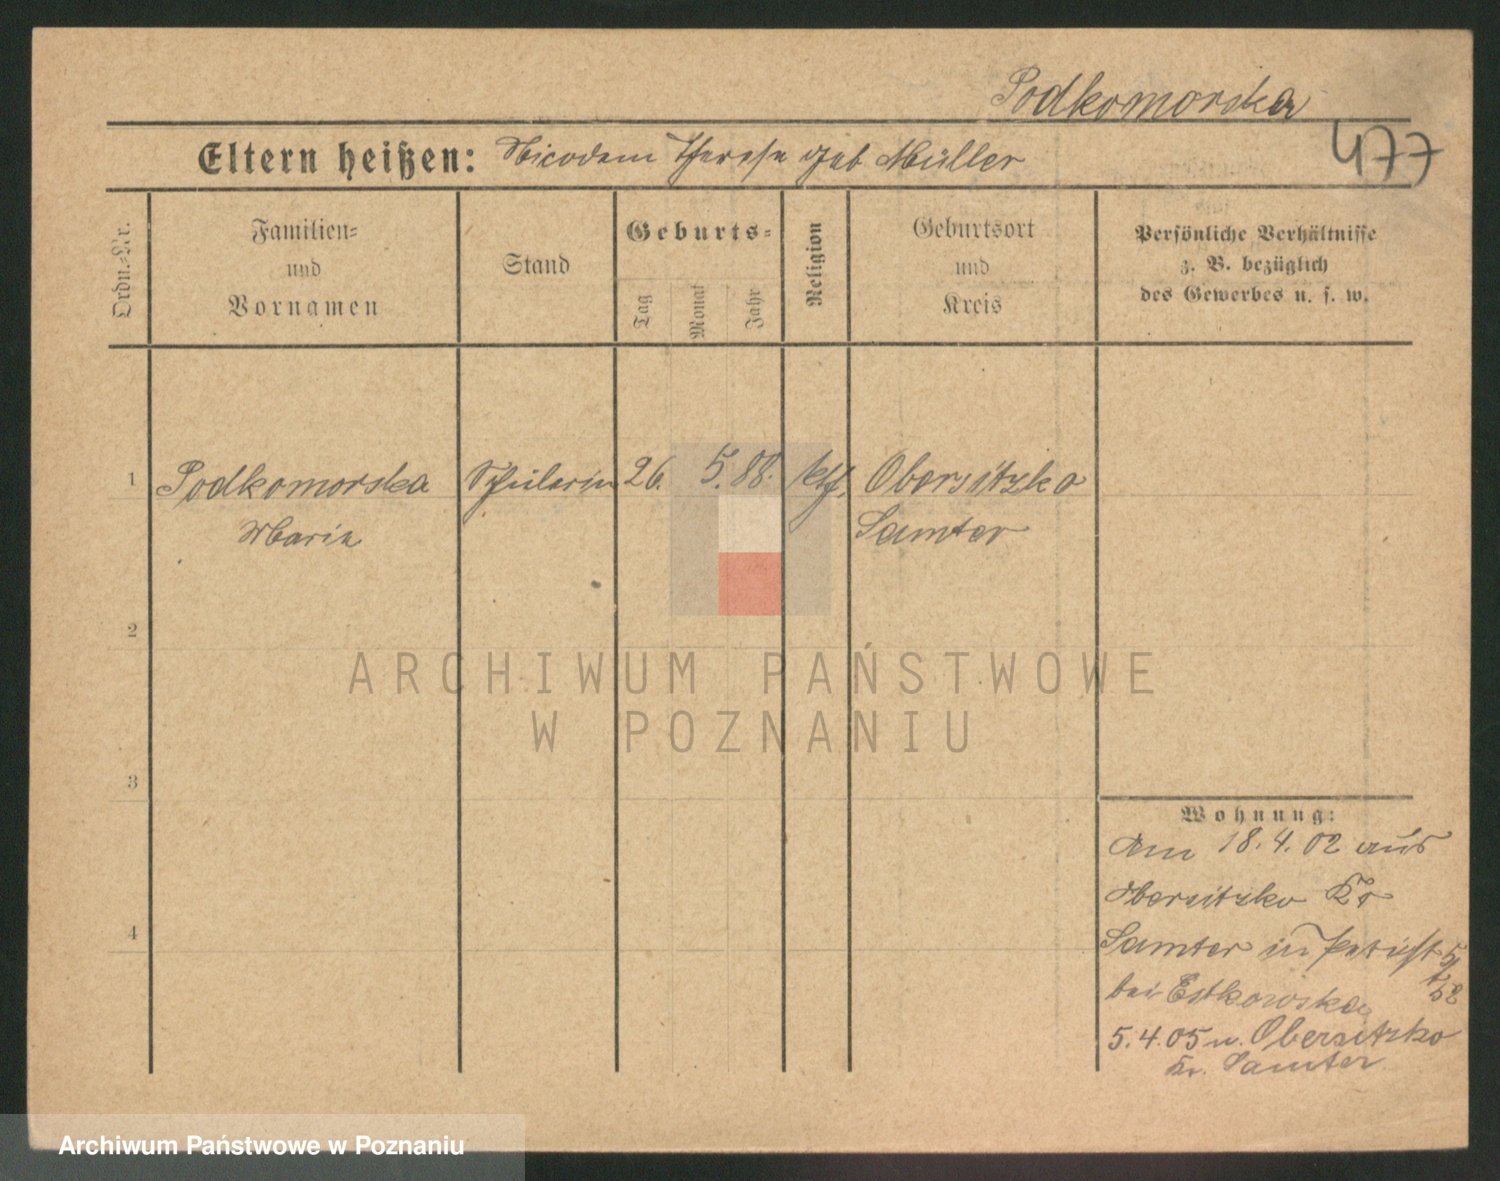 Podkomorska
477
Eltern heißen: Nicodem Therese geb Müller
Ordn.-Nr.
Familien-
und
Vornamen
Stand
Geburts-
Tag
Monat
Jahr
Religion
Geburtsort
und
Kreis
Persönliche Verhältnisse
z. B. bezüglich
des Gewerbes u. s. w.
1 Podkomorska Schülerin 26. 5. 88. kth. Obersitzko
Marie Samter
2
ARCHIWUM PAŃSTWOWE
W POZNANIU
3
Wohnung:
Am 18.4.02 aus
Obersitzko Kr
4
Samter in
bei Estkowska
5.4.05 n. Obersitzko
Kr. Samter
Archiwum Państwowe w Poznaniu